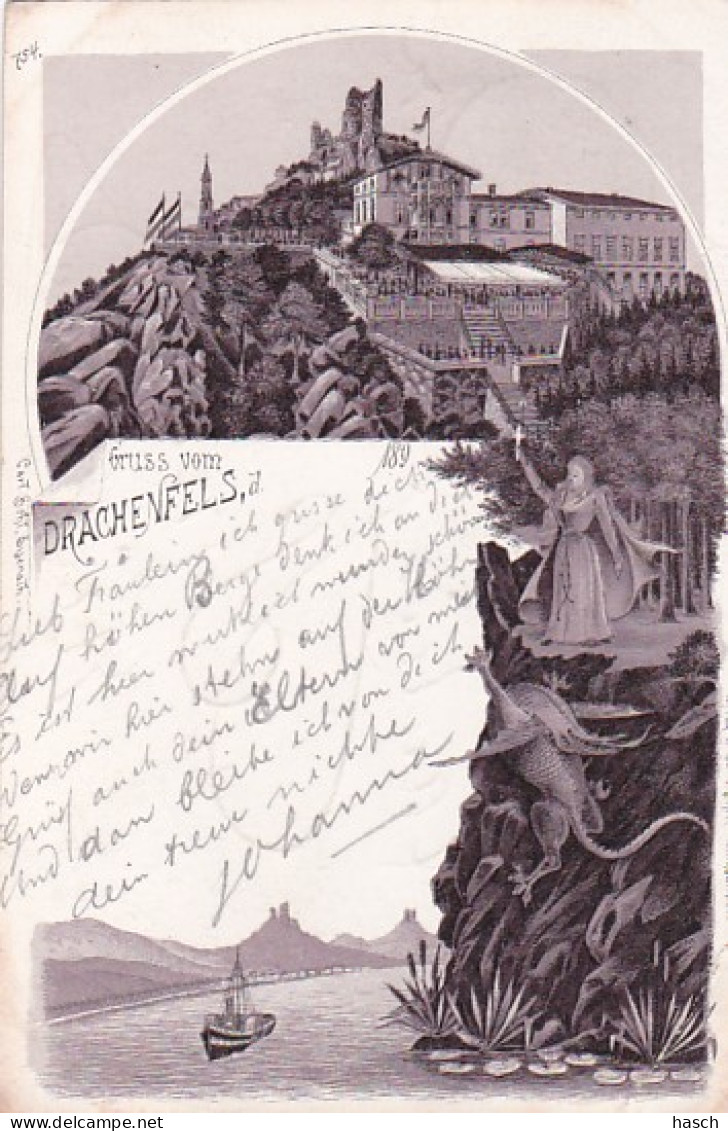 754.
Gruss vom
DRACHENFELS, d. 189
Lieb Fräulein ich grüsse dich
Auf höhen Berge denk ich an dich
Es ist hier wirklich wunderschön
Wenn wir hier stehn auf der Höhn
Grüß auch dein Eltern von mir
Und dan bleibe ich von dich
dein treue nichte
Johanna
hasch